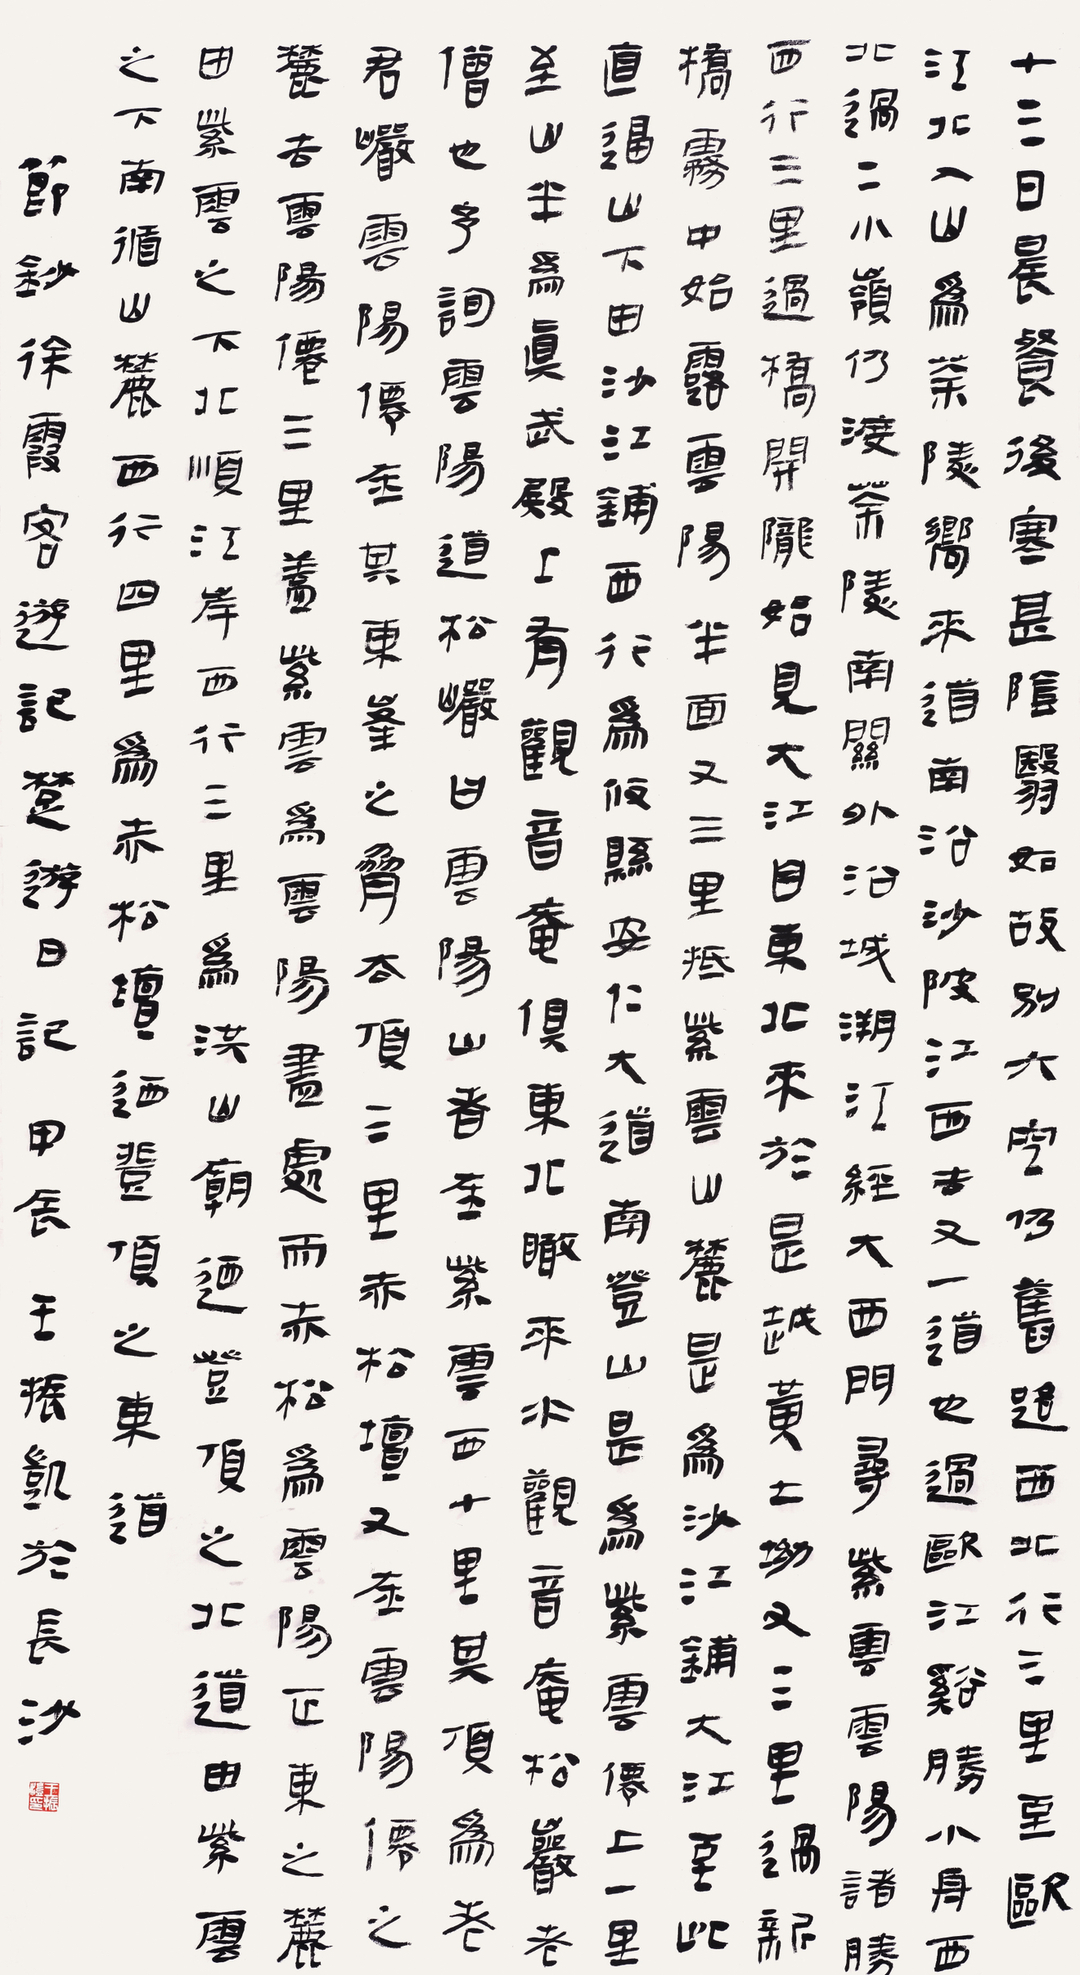 十二日晨餐後寒甚陰翳如故別大空仍舊路西北行三里至歐
江北入山爲茶陵嚮來道南沿沙陂江西去又一道也過歐江谿勝小舟西
北過二小嶺仍渡茶陵南關外沿城溯江經大西門尋紫雲雲陽諸勝
西行三里過橋開隴始見大江自東北來於是越黃土坳又三里過新
橋霧中始露雲陽半面又三里抵紫雲山麓是爲沙江鋪大江至此
直逼山下由沙江鋪西行爲攸縣安仁大道南登山是爲紫雲僊上一里
至山半爲真武殿上有觀音菴俱東北瞰來水觀音菴松巖老
僧也予詢雲陽道松巖曰雲陽山者在紫雲西十里其頂爲老
君巖雲陽僊在其東峯之脅去頂三里赤松壇又在雲陽僊之
麓去雲陽僊三里蓋紫雲爲雲陽盡處而赤松爲雲陽正東之麓
由紫雲之下北順江岸西行三里爲洪山廟迺登頂之北道由紫雲
之下南循山麓西行四里爲赤松壇迺登頂之東道
節鈔徐霞客遊記楚遊日記 甲辰 王振凱於長沙